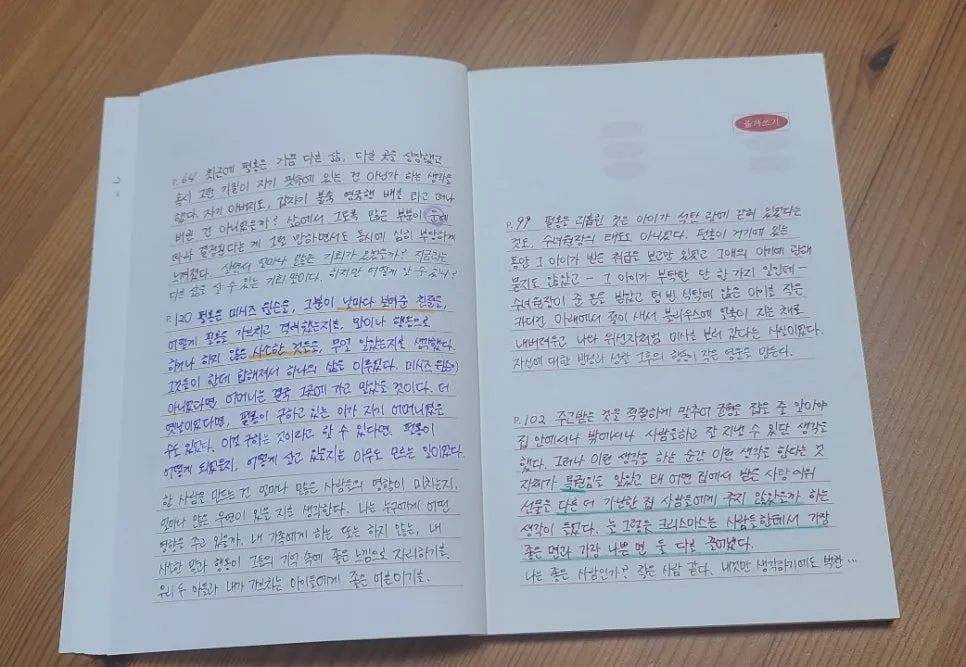 p.64 최근에 펄롱은 가끔 다른 삶, 다른 곳을 상상했고
혹시 그런 기질이 자기 핏속에 있는 건 아닌가 하는 생각을
했다. 자기 아버지도, 갑자기 불쑥 영국행 배를 타고 떠나
버린 건 아니었을까? 삶에서 그토록 많은 부분이 운에
따라 결정된다는 게 그럴 만하면서도 동시에 심히 부당하게
느껴졌다.
다른 삶을 살 수 있는 기회 말이다. 하지만 어떻게 알 수 있나?
p.120 펄롱은 미시즈 윌슨을, 그분이 날마다 보여준 친절을,
어떻게 펄롱을 가르치고 격려했는지를, 말이나 행동으로
하거나 하지 않은 사소한 것들을, 무얼 알았을지를 생각했다.
그것들이 한데 합해져서 하나의 삶을 이루었다. 미시즈 윌슨이
아니었다면 어머니는 결국 그곳에 가고 말았을 것이다. 더
옛날이었다면, 펄롱이 구하고 있는 이가 자기 어머니였을
수도 있었다. 이걸 구하는 것이라고 할 수 있다면. 펄롱이
어떻게 되었을지, 어떻게 살고 있을지는 아무도 모르는 일이었다.
한 사람을 만드는 건 얼마나 많은 사람들의 영향이 미치는지,
얼마나 많은 우연이 있을지를 생각한다. 나는 누구에게 어떤
영향을 주고 있을까. 내 가족에게 하는 또는 하지 않는, 내
사소한 말과 행동이 그들의 기억 속에 좋은 느낌으로 자리하기를.
우리 두 아들과 내가 가르치는 아이들에게 좋은 어른이기를.
옮겨쓰기
p.99 펄롱을 괴롭힌 것은 아이가 석탄 광에 갇혀 있었다는
것도, 수녀원장의 태도도 아니었다. 펄롱이 거기에 있는
동안 그 아이가 받은 취급을 보고만 있었고 그애의 아기에 관해
묻지도 않았고 – 그 아이가 부탁한 단 한 가지 일인데 –
수녀원장이 준 돈을 받았고 텅 빈 식탁에 앉은 아이를 작은
카디건 아래에서 젖이 새서 블라우스에 얼룩이 지는 채로
내버려두고 나와 위선자처럼 미사를 보러 갔다는 사실이었다.
자신에 대한 반성과 성찰 그 후의 행동이 작은 영웅을 만든다.
p.102 주고받는 것을 적절하게 맞추어 균형을 잡을 줄 알아야
집 안에서나 밖에서나 사람들하고 잘 지낼 수 있단 생각을
했다. 그러나 이런 생각을 하는 순간 이런 생각을 한다는 것
자체가 특권임을 알았고 왜 어떤 집에서 받은 사탕 따위
선물을 다른 더 가난한 집 사람들에게 주지 않았을까 하는
생각이 들었다. 늘 그렇듯 크리스마스는 사람들한테서 가장
좋은 면과 가장 나쁜 면 둘 다를 끌어냈다.
나는 좋은 사람인가? 작은 사람 같다. 내것만 생각하기에도 벅찬 ...